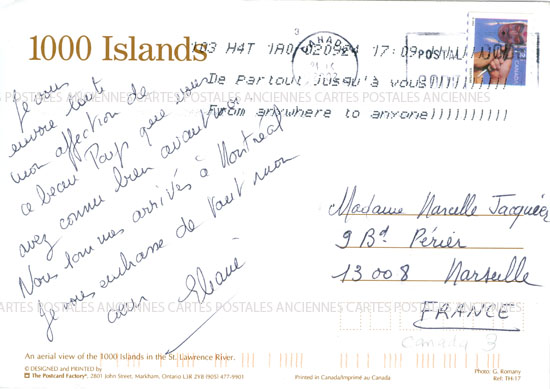 1000 Islands
H4T 1A0 020924 17:09
CANADA
POST
De partout jusqu'à vous!!!!!!!!!!
From anywhere to anyone!!!!!!!!!!
CARTES POSTALES ANCIENNES CARTES POSTALES ANCIENNES CARTES POSTALES ANCIENNES
Je vous
envoie toute
mon affection de
ce beau Pays que vous
avez connu bien avant
Nous sommes arrivés à Montréal
Je vous embrasse de tout mon
cœur Eliane
Madame Marcelle Jacquier
9 Bd Périer
13 008 Marseille
FRANCE
CARTES POSTALES ANCIENNES CARTES POSTALES ANCIENNES CARTES POSTALES ANCIENNES
Canada 3
An aerial view of the 1000 Islands in the St. Lawrence River.
© DESIGNED and PRINTED by
The Postcard Factory®, 2801 John Street, Markham, Ontario L3R 2Y8 (905) 477-9901
Printed in Canada/Imprimé au Canada
Photo: G. Romany
Ref: TH-17